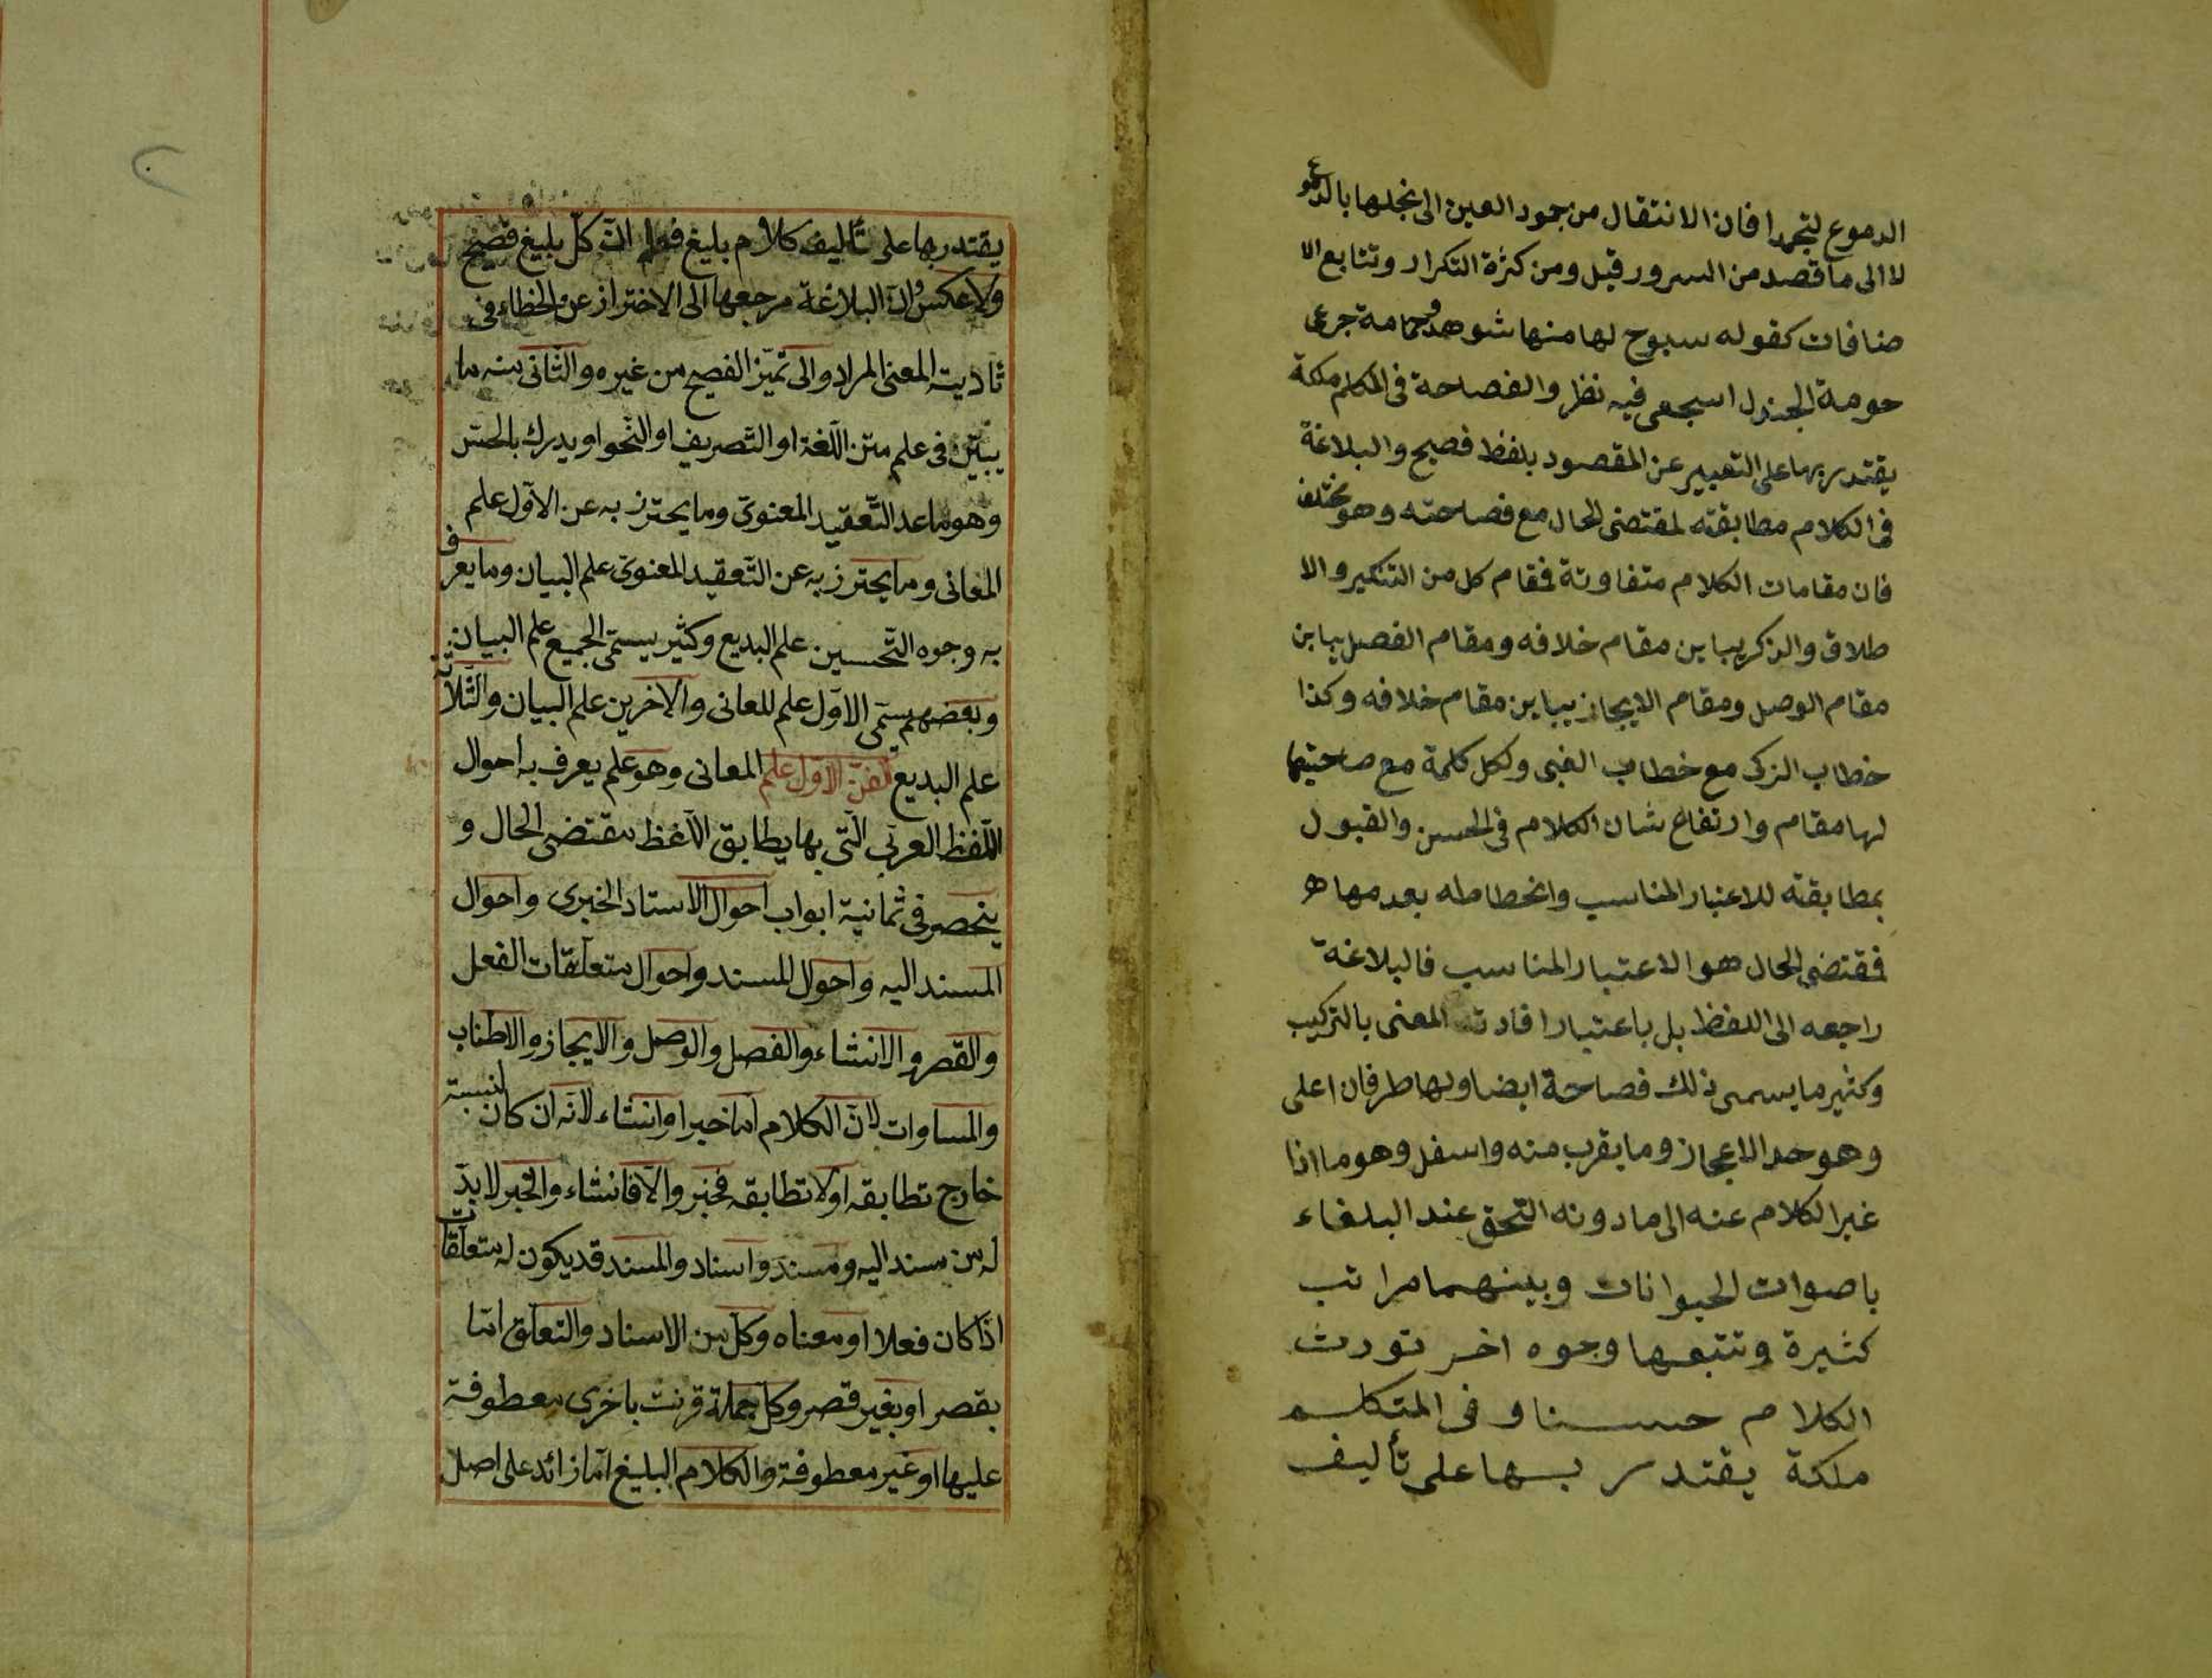 الدموع لتجمدا فان الانتقال من جمود العين الى بخلها بالدموع
لا الى ما قصد من السرور قيل ومن كثرة التكرار وتتابع الا
ضافات كقوله سبوح لها منها شوهد وحمامة جرعى
حومة الجندل اسجعى فيه نظر والفصاحة فى المكلم ملكة
يقتدر بها على التعبير عن المقصود بلفظ فصيح والبلاغة
فى الكلام مطابقته لمقتضى الحال مع فصاحته وهو مختلف
فان مقامات الكلام متفاوتة فمقام كل من التنكير والا
طلاق والذكر يباين مقام خلافه ومقام الفصل يباين
مقام الوصل ومقام الايجاز يباين مقام خلافه وكذا
خطاب الزكى مع خطاب الغبى ولكل كلمة مع صاحبتها
لها مقام وارتفاع شان الكلام فى الحسن والقبول
بمطابقته للاعتبار المناسب وانحطاطه بعدمها هـ
فمقتضى الحال هو الاعتبار المناسب فالبلاغة
راجعه الى اللفظ بل باعتبار افادته المعنى بالتركيب
وكثير ما يسمى ذلك فصاحة ايضا ولها طرفان اعلى
وهو حد الاعجاز وما يقرب منه واسفل وهو ما اذا
غير الكلام عنه الى ما دونه التحق عند البلغاء
باصوات الحيوانات وبينهما مراتب
كثيرة وتتبعها وجوه اخر تورث
الكلام حسنا و فى المتكلم
ملكة يقتدر بها على تأليف
يقتدر بها على تأليف كلام بليغ فعلم انّ كلّ بليغ فصيح
ولا عكس وانّ البلاغة مرجعها الى الاختراز عن الخطاء فى
تأدية المعنى المراد والى تميّز الفصيح من غيره والثّانى منه ما
يبيّن فى علم متن اللّغة او التّصريف او النّحو او يدرك بالحسّ
وهو ما عد التّعقيد المعنوىّ وما يحترز به عن الاوّل علم
المعانى وما يحترز به عن التّعقيد المعنوىّ علم البيان وما يعرف
به وجوه التّحسين علم البديع وكثير يسمّى الجميع علم البيان
وبعضهم يسمّى الاوّل علم المعانى والآخرين علم البيان والثّلاثة
علم البديع الفنّ الاوّل علم المعانى وهو علم يعرف به احوال
اللّفظ العربىّ الّتى بها يطابق اللّفظ مقتضى الحال و
ينحصر فى ثمانية ابواب احوال الاسناد الخبرى واحوال
المسند اليه واحوال المسند واحوال متعلّقات الفعل
والقصر والانشاء والفصل والوصل والايجاز والاطناب
والمساوات لانّ الكلام امّا خبر او انشاء لانّه ان كان لنسبته
خارج تطابقه اولا تطابقه فخبر والّا فانشاء والخبر لا بدّ
له من مسند اليه ومسند واسناد والمسند قد يكون له متعلّقات
اذا كان فعلا او معناه وكلّ من الاسناد والتعلّق امّا
بقصر او بغير قصر وكلّ جملة قرنت باخرى معطوفة
عليها او غير معطوفة والكلام البليغ امّا زائد على اصل